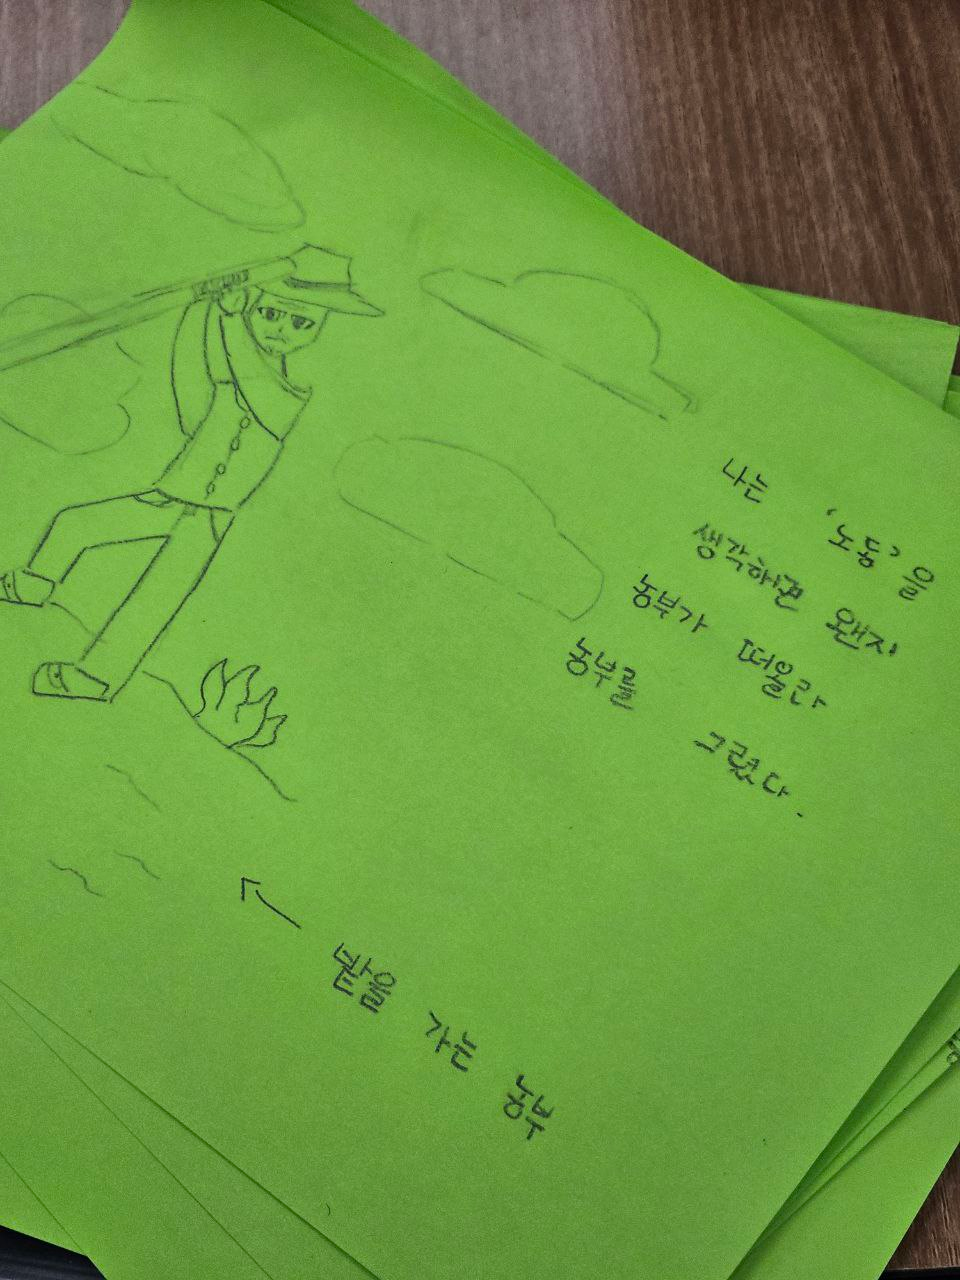 나는 '노동'을
생각하면 왠지
농부가 떠올라
농부를 그렸다.
밭을 가는 농부